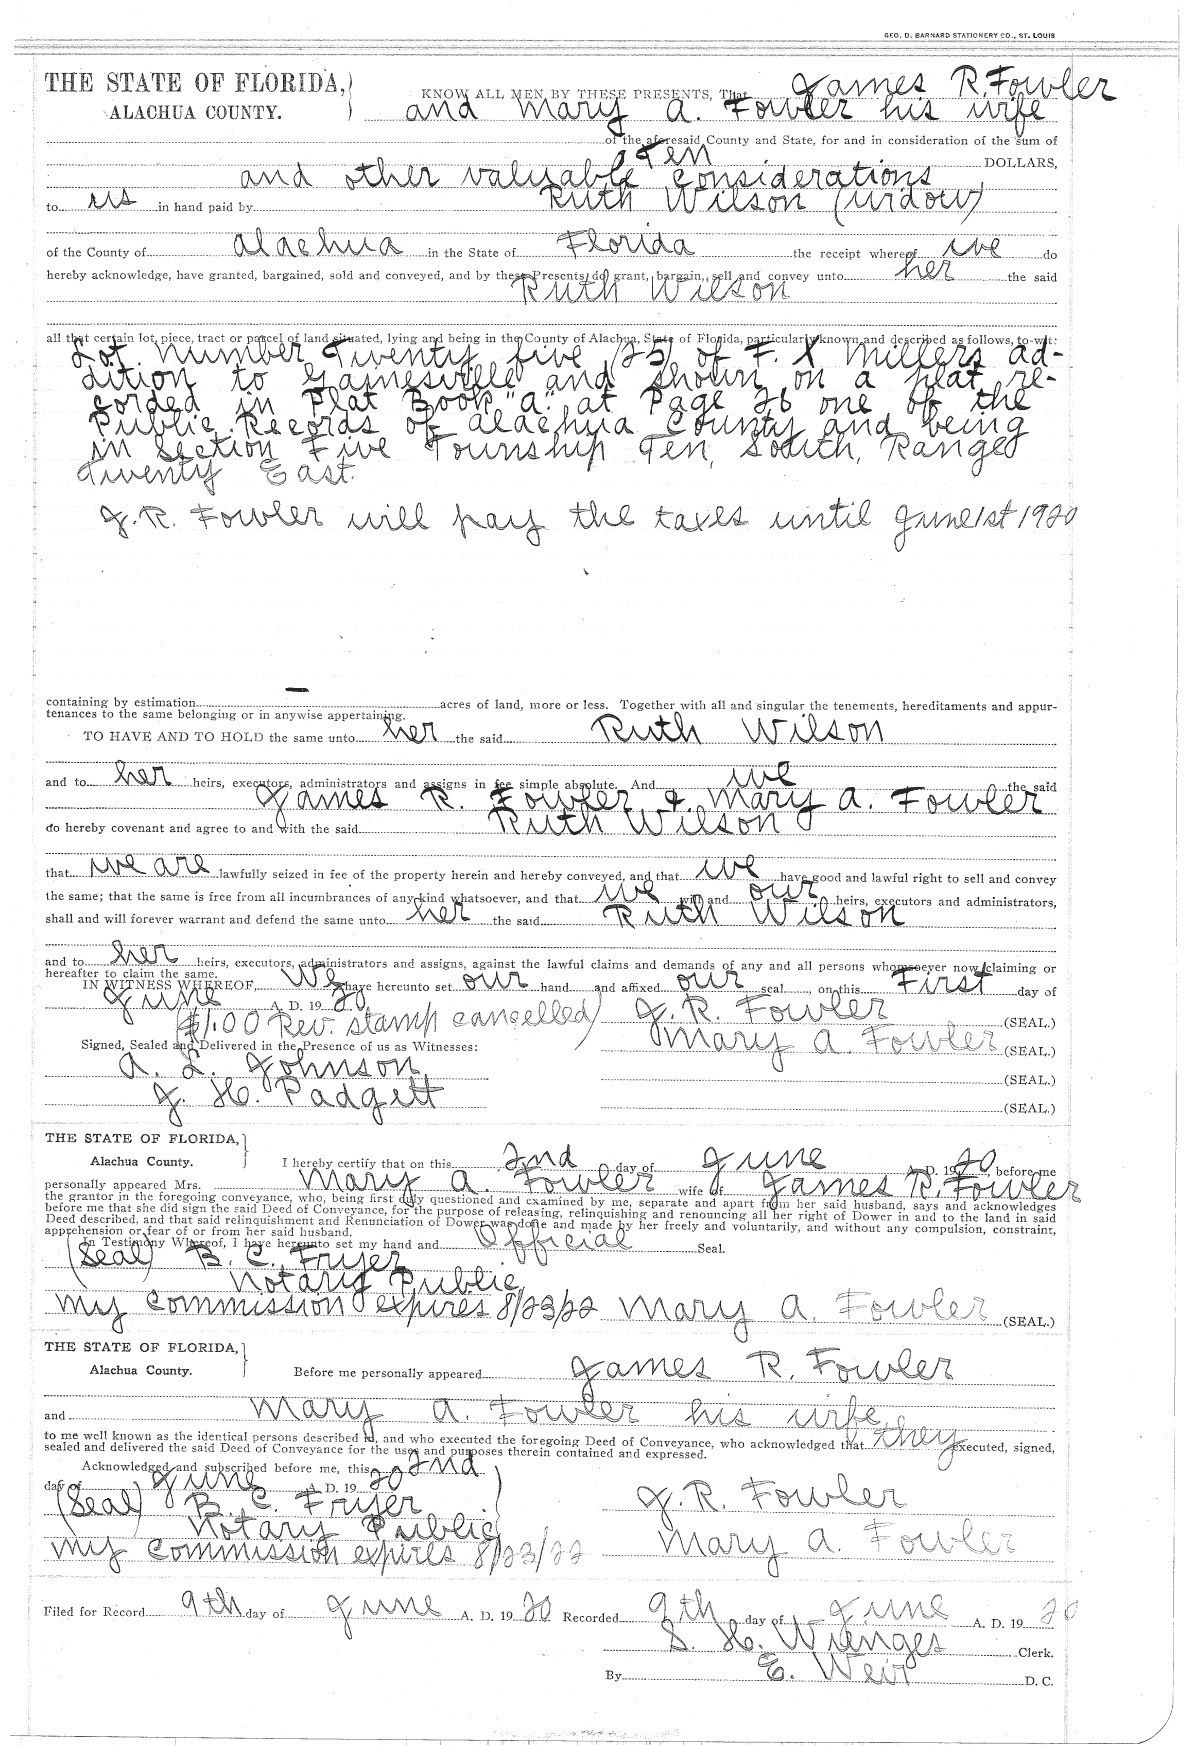 GEO. D. BARNARD STATIONERY CO., ST. LOUIS
THE STATE OF FLORIDA,
ALACHUA COUNTY.
KNOW ALL MEN BY THESE PRESENTS, That James R. Fowler
and Mary A. Fowler his wife
of the aforesaid County and State, for and in consideration of the sum of
Ten DOLLARS,
and other valuable considerations
to us in hand paid by Ruth Wilson (widow)
of the County of Alachua in the State of Florida the receipt whereof we do
hereby acknowledge, have granted, bargained, sold and conveyed, and by these Presents do grant, bargain, sell and convey unto her the said
Ruth Wilson
all that certain lot, piece, tract or parcel of land situated, lying and being in the County of Alachua, State of Florida, particularly known and described as follows, to-wit:
Lot number Twenty five (25) of F. X Millers ad-
dition to Gainesville and shown on a plat re-
corded in Plat Book "A" at Page 26 one of the
Public Records of Alachua County and being
in Section Five Township Ten, South, Range
Twenty East.
J. R. Fowler will pay the taxes until June 1st 1920
containing by estimation — acres of land, more or less. Together with all and singular the tenements, hereditaments and appur-
tenances to the same belonging or in anywise appertaining.
TO HAVE AND TO HOLD the same unto her the said Ruth Wilson
and to her heirs, executors, administrators and assigns in fee simple absolute. And we the said
James R. Fowler & Mary A. Fowler
do hereby covenant and agree to and with the said Ruth Wilson
that we are lawfully seized in fee of the property herein and hereby conveyed, and that we have good and lawful right to sell and convey
the same; that the same is free from all incumbrances of any kind whatsoever, and that we will and our heirs, executors and administrators,
shall and will forever warrant and defend the same unto her the said Ruth Wilson
and to her heirs, executors, administrators and assigns, against the lawful claims and demands of any and all persons whomsoever now claiming or
hereafter to claim the same.
IN WITNESS WHEREOF, We have hereunto set our hand and affixed our seal, on this First day of
June A. D. 1920
($1.00 Rev. stamp cancelled) J. R. Fowler (SEAL.)
Mary A. Fowler (SEAL.)
Signed, Sealed and Delivered in the Presence of us as Witnesses:
A. L. Johnson (SEAL.)
J. H. Padgett (SEAL.)
THE STATE OF FLORIDA,
Alachua County.
I hereby certify that on this 2nd day of June A. D. 1920, before me
personally appeared Mrs. Mary A. Fowler wife of James R. Fowler
the grantor in the foregoing conveyance, who, being first duly questioned and examined by me, separate and apart from her said husband, says and acknowledges
before me that she did sign the said Deed of Conveyance, for the purpose of releasing, relinquishing and renouncing all her right of Dower in and to the land in said
Deed described, and that said relinquishment and Renunciation of Dower was done and made by her freely and voluntarily, and without any compulsion, constraint,
apprehension or fear of or from her said husband.
In Testimony Whereof, I have hereunto set my hand and Official Seal.
(Seal) B. C. Fryer
Notary Public
My commission expires 8/23/22 Mary A. Fowler (SEAL.)
THE STATE OF FLORIDA,
Alachua County.
Before me personally appeared James R. Fowler
and Mary A. Fowler his wife
to me well known as the identical persons described in, and who executed the foregoing Deed of Conveyance, who acknowledged that they executed, signed,
sealed and delivered the said Deed of Conveyance for the uses and purposes therein contained and expressed.
Acknowledged and subscribed before me, this 2nd
day of June A. D. 1920
(Seal) B. C. Fryer J. R. Fowler
Notary Public
My commission expires 8/23/22 Mary A. Fowler
Filed for Record 9th day of June A. D. 1920 Recorded 9th day of June A. D. 1920
S. H. Wienges Clerk.
By E. Weir D. C.